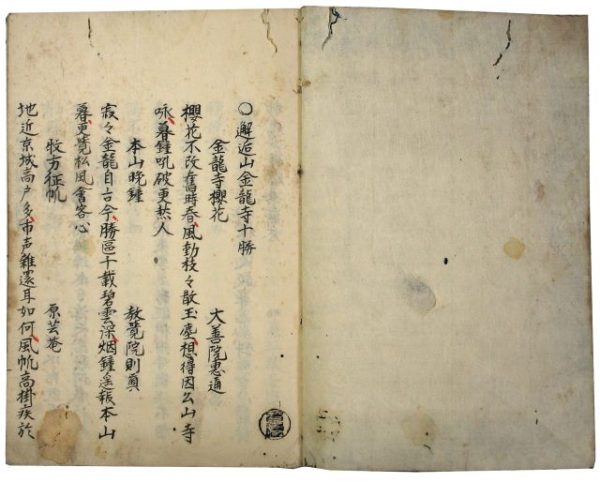 〇邂逅山金龍寺十勝
金龍寺櫻花　大善院惠通
櫻花不改舊時春風動枝々散玉塵想得因公山寺
咏暮鐘吼破更愁人
本山晚鐘　教覽院則貟
寂々金龍自古今勝區千載碧雲深烟鐘遥報本山
暮更覺松風會客心
牧方征帆　原芸菴
地近京城高戸多市声雜還耳如何風帆高掛疾於